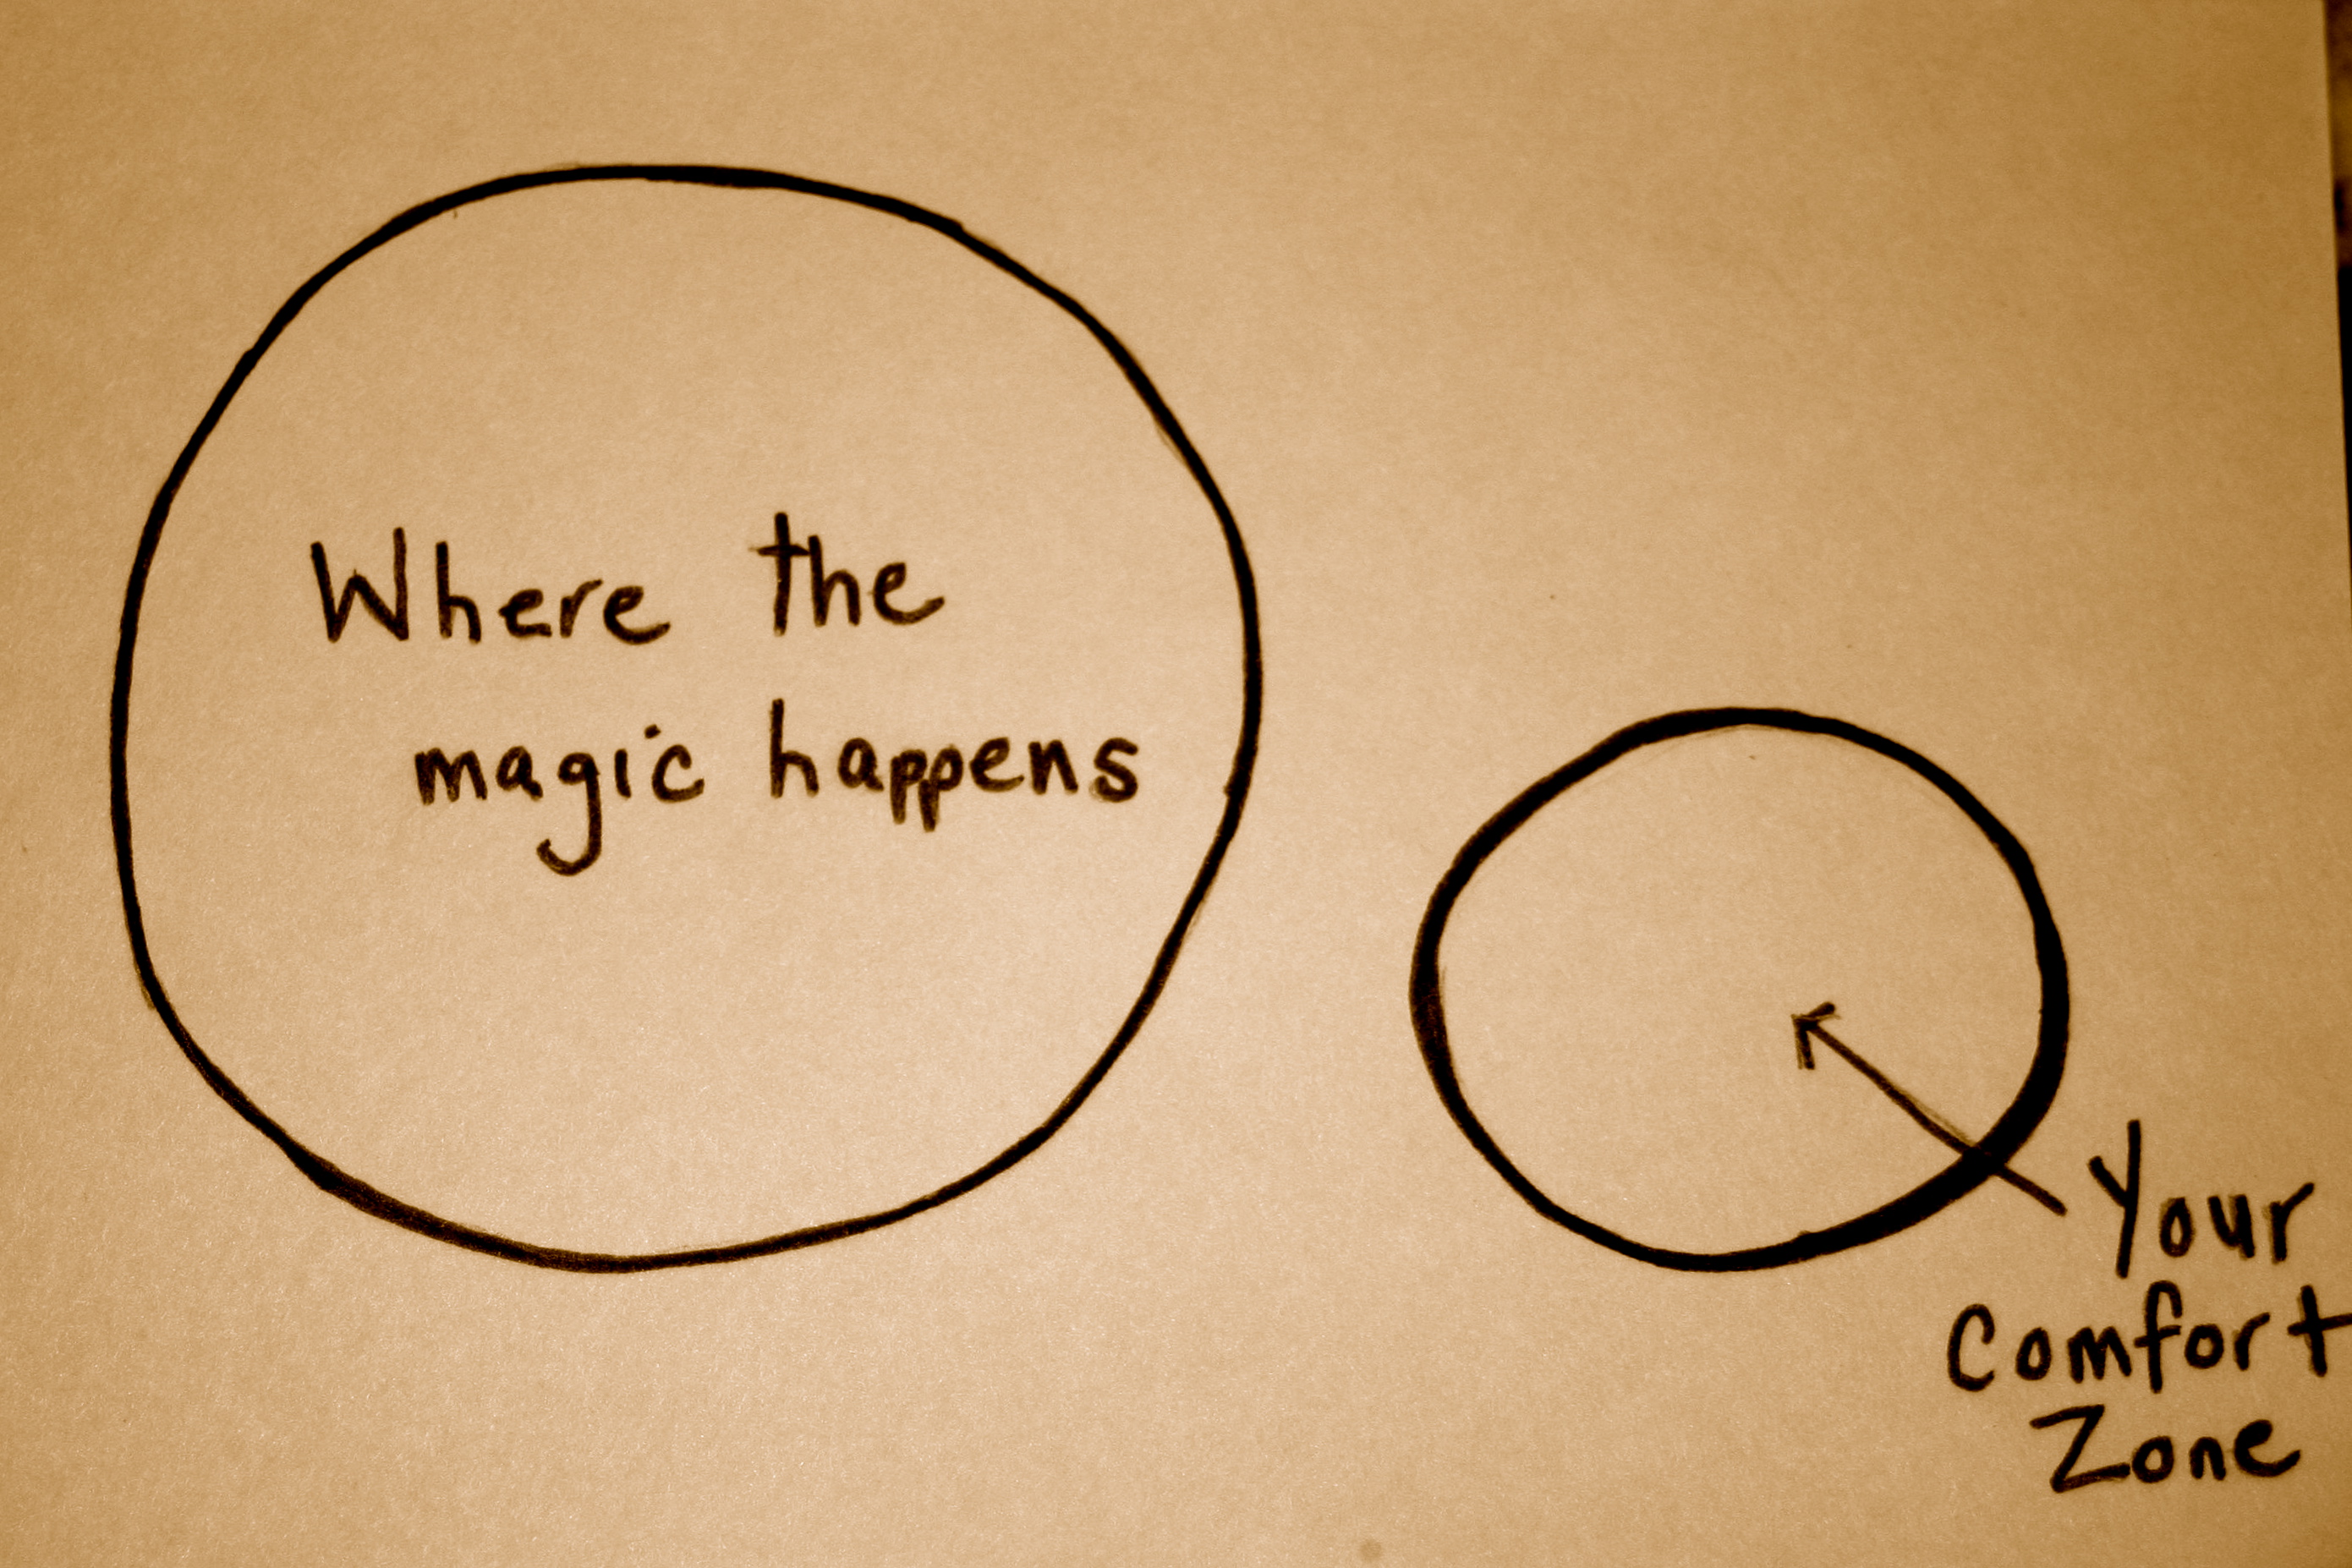 Where the
magic happens
Your
Comfort
Zone